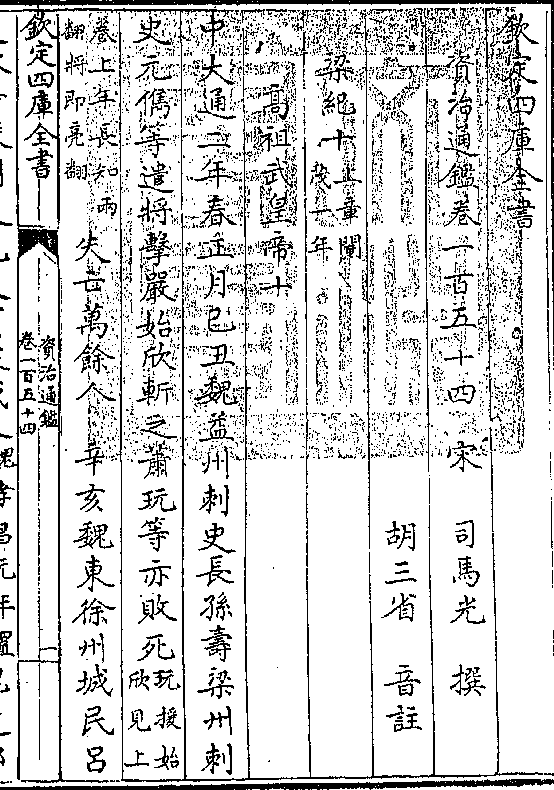 欽定四庫全書
資治通鑑卷一百五十四 宋 司馬光 撰
胡三省 音註
梁紀十 上章閹茂一年
高祖武皇帝十
中大通二年春正月己丑魏益州刺史長孫壽梁州刺
史元儁等遣將擊嚴始欣斬之蕭玩等亦敗死 玩援始欣見上
卷上年長知兩翻將即亮翻 失亡萬餘人 辛亥魏東徐州城民呂
欽定四庫全書
資治通鑑
卷一百五十四
一